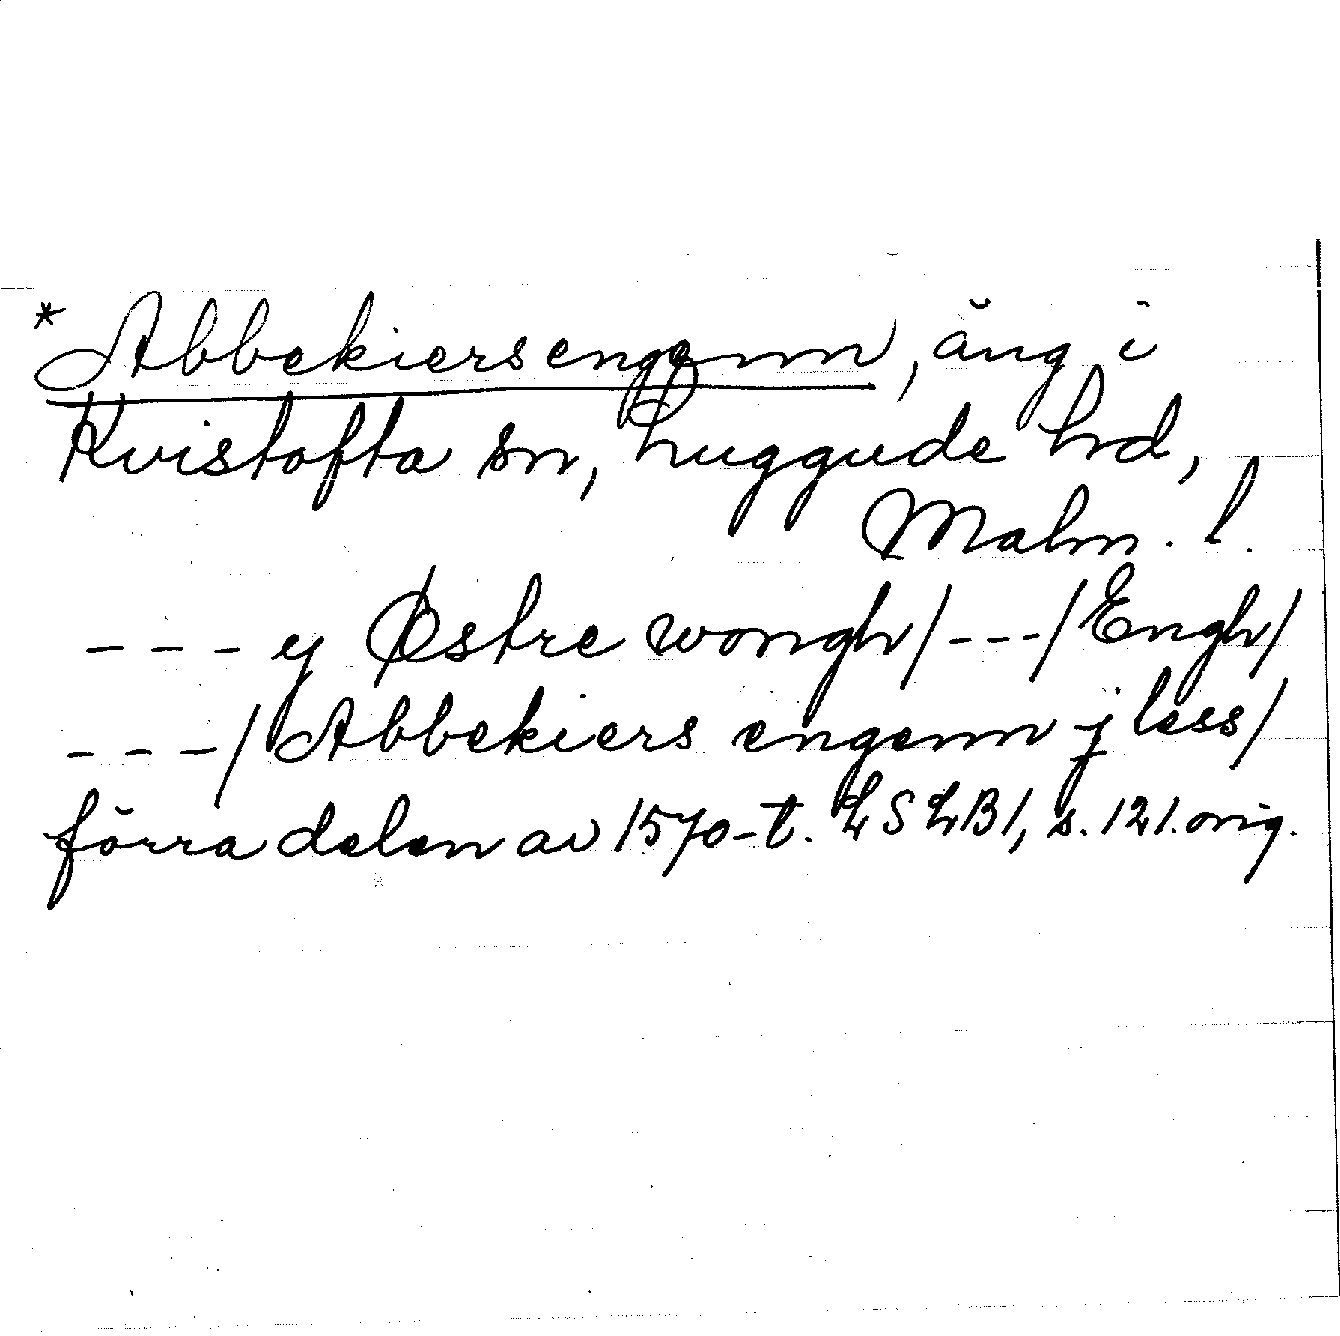 *Abbekiersengenn, äng i
Kvistofta sn, Luggude hd,
Malm. l.
--- ij Østre wongh/---/Engh/
---/Abbekiers engenn j less/
förra delen av 1570-t. LSLB1, s. 121. orig.